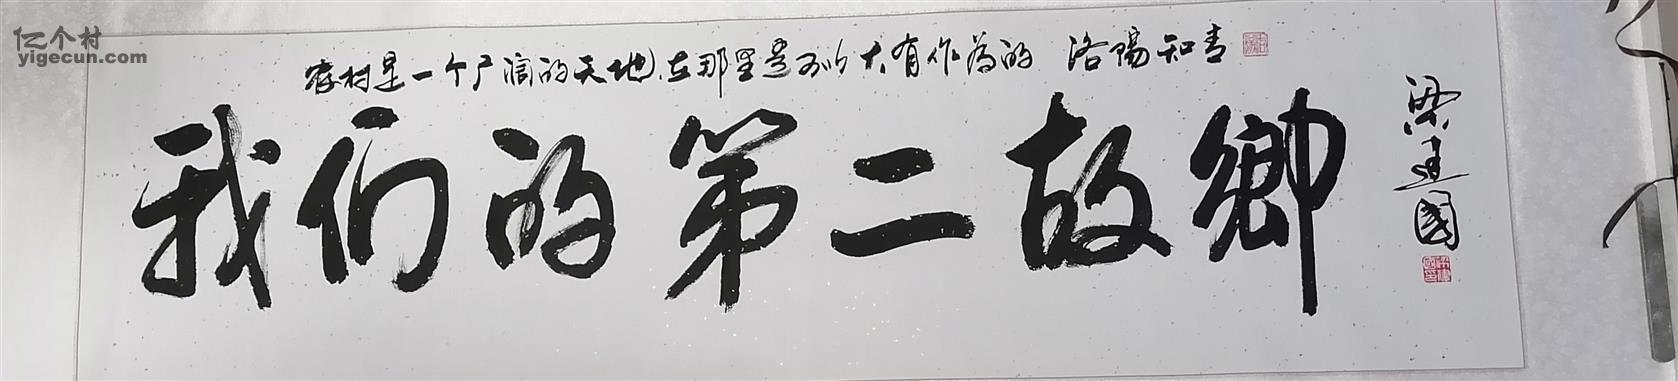 亿个村
yigecun.com
农村是一个广阔的天地,在那里是可以大有作为的 洛陽知青
我们的第二故鄉
梁建國